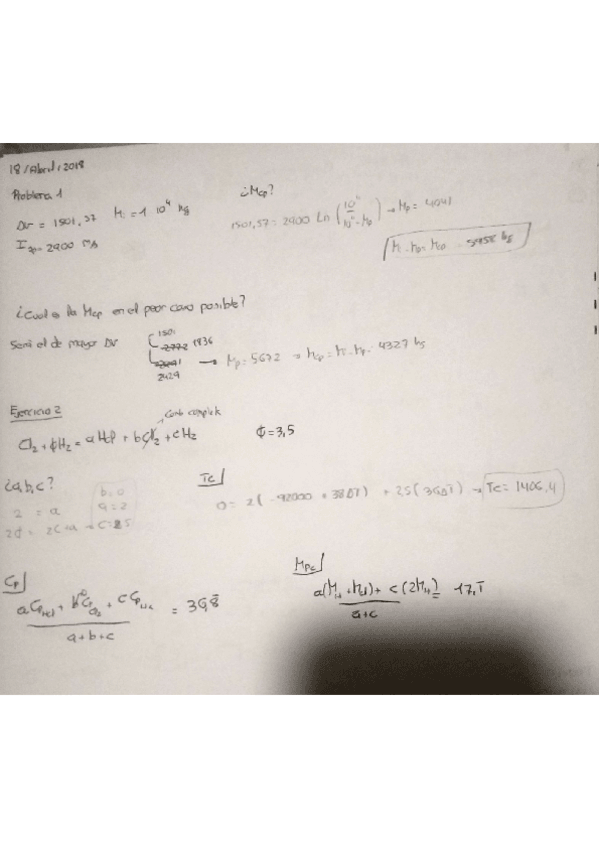 18/Abril/2018
Problema 1
Δv = 1501,57 Mi = 1 10⁴ kg
Isp = 2900 m/s
¿Mcp?
1501,57 = 2900 Ln (10⁴ / 10⁴ - Mp) → Mp = 4041
Mi - Mp = Mcp 5958 kg
¿Cual es la Mcp en el peor caso posible?
Sería el de mayor Δv
1501
1836
2429
→ Mp = 5672 → Mcp = Mi - Mp = 4327 kg
Ejercicio 2
Comb completa
Cl₂ + ϕH₂ = aHCl + bCl₂ + cH₂ ϕ = 3,5
¿a,b,c?
2 = a
b = 0
a = 2
2ϕ = 2c + a → c = 2.5
Tc
0 = 2(-92000 + 38ΔT) + 2.5(36ΔT) → Tc = 1406,4
Cp
aCpHCl + bCpCl₂ + cCpH₂ / a+b+c = 36,8
Mpc
a(MH + MCl) + c(2MH) / a+c = 17,7